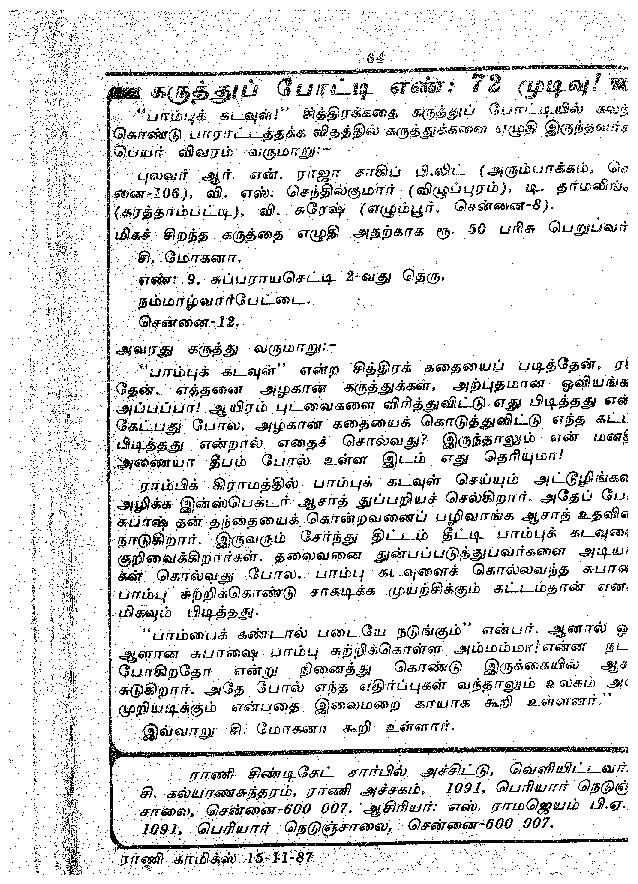 64
கருத்துப் போட்டி எண்: 72 முடிவு!
"பாம்புக் கடவுள்!" சித்திரக்கதை கருத்துப் போட்டியில் கலந்
கொண்டு பாராட்டத்தக்க விதத்தில் கருத்துக்களை எழுதி இருந்தவர்க
பெயர் விவரம் வருமாறு:-
புலவர் ஆர். என். ராஜா சாகிப் பி.லிட் (அரும்பாக்கம், செ
னை-106), வி. எஸ். செந்தில்குமார் (விழுப்புரம்), டி. தர்மலிங்
(கரத்தாம்பட்டி), வி. சுரேஷ் (எழும்பூர், சென்னை-8).
மிகச் சிறந்த கருத்தை எழுதி அதற்காக ரூ. 50 பரிசு பெறுபவர்
சி. மோகனா,
எண்: 9, சுப்பராயசெட்டி 2-வது தெரு,
நம்மாழ்வார்பேட்டை,
சென்னை-12.
அவரது கருத்து வருமாறு:-
"பாம்புக் கடவுள்" என்ற சித்திரக் கதையைப் படித்தேன், ர
தேன். எத்தனை அழகான கருத்துக்கள், அற்புதமான ஓவியங்க
அப்பப்பா! ஆயிரம் புடவைகளை விரித்துவிட்டு எது பிடித்தது என்
கேட்பது போல, அழகான கதையைக் கொடுத்துவிட்டு எந்த கட்ட
பிடித்தது என்றால் எதைச் சொல்வது? இருந்தாலும் என் மனதி
அணையா தீபம் போல் உள்ள இடம் எது தெரியுமா!
ராம்பிக் கிராமத்தில் பாம்புக் கடவுள் செய்யும் அட்டூழிங்கள
அழிக்க இன்ஸ்பெக்டர் ஆசாத் துப்பறியச் செல்கிறார். அதேப் போ
சுபாஷ் தன் தந்தையைக் கொன்றவனைப் பழிவாங்க ஆசாத் உதவின
நாடுகிறார். இருவரும் சேர்ந்து திட்டம் தீட்டி பாம்புக் கடவுளை
குறிவைக்கிறார்கள். தலைவனை துன்பப்படுத்துபவர்களை அடியா
கள் கொல்வது போல, பாம்பு கடவுளைக் கொல்லவந்த சுபாஷ
பாம்பு சுற்றிக்கொண்டு சாகடிக்க முயற்சிக்கும் கட்டம்தான் என
மிகவும் பிடித்தது.
"பாம்பைக் கண்டால் படையே நடுங்கும்" என்பர். ஆனால் ஒ
ஆளான சுபாஷை பாம்பு சுற்றிக்கொள்ள அம்மம்மா! என்ன நட
போகிறதோ என்று நினைத்து கொண்டு இருக்கையில் ஆச
சுடுகிறார். அதே போல் எந்த எதிர்ப்புகள் வந்தாலும் உலகம் அ
முறியடிக்கும் என்பதை இலைமறை காயாக கூறி உள்ளனர்."
இவ்வாறு சி. மோகனா கூறி உள்ளார்.
ராணி சிண்டிகேட் சார்பில் அச்சிட்டு, வெளியிட்டவர்
சி. கல்யாணசுந்தரம், ராணி அச்சகம், 1091, பெரியார் நெடுஞ்
சாலை, சென்னை-600 007. ஆசிரியர்: எஸ். ராமஜெயம் பி.ஏ.
1091, பெரியார் நெடுஞ்சாலை, சென்னை-600 007.
ராணி காமிக்ஸ் 15-11-87